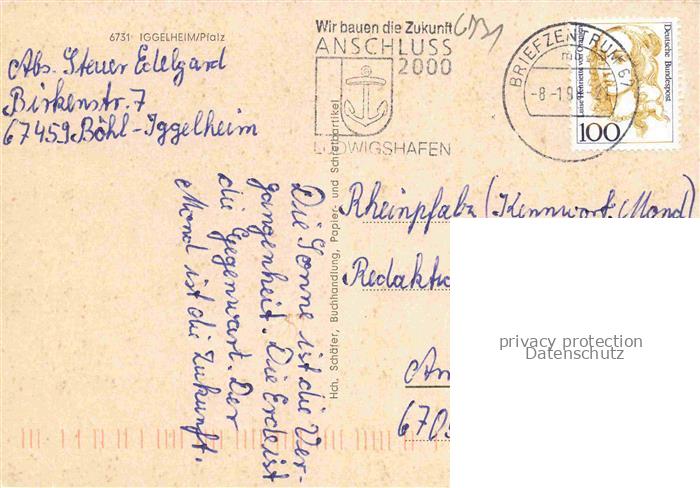 6731 IGGELHEIM/Pfalz
Abs. Steuer Edelgard
Birkenstr. 7
67459 Böhl-Iggelheim
Wir bauen die Zukunft
ANSCHLUSS
2000
LUDWIGSHAFEN
BRIEFZENTRUM 67
mb
-8-1.9
Deutsche Bundespost
100
Hch. Schäfer, Buchhandlung, Papier- und Schreibartikel
Die Sonne ist die Ver-
gangenheit. Die Erde ist
die Gegenwart. Der
Mond ist die Zukunft.
Rheinpfalz (Kennwort: Mond)
Redakti
Am
670
privacy protection
Datenschutz